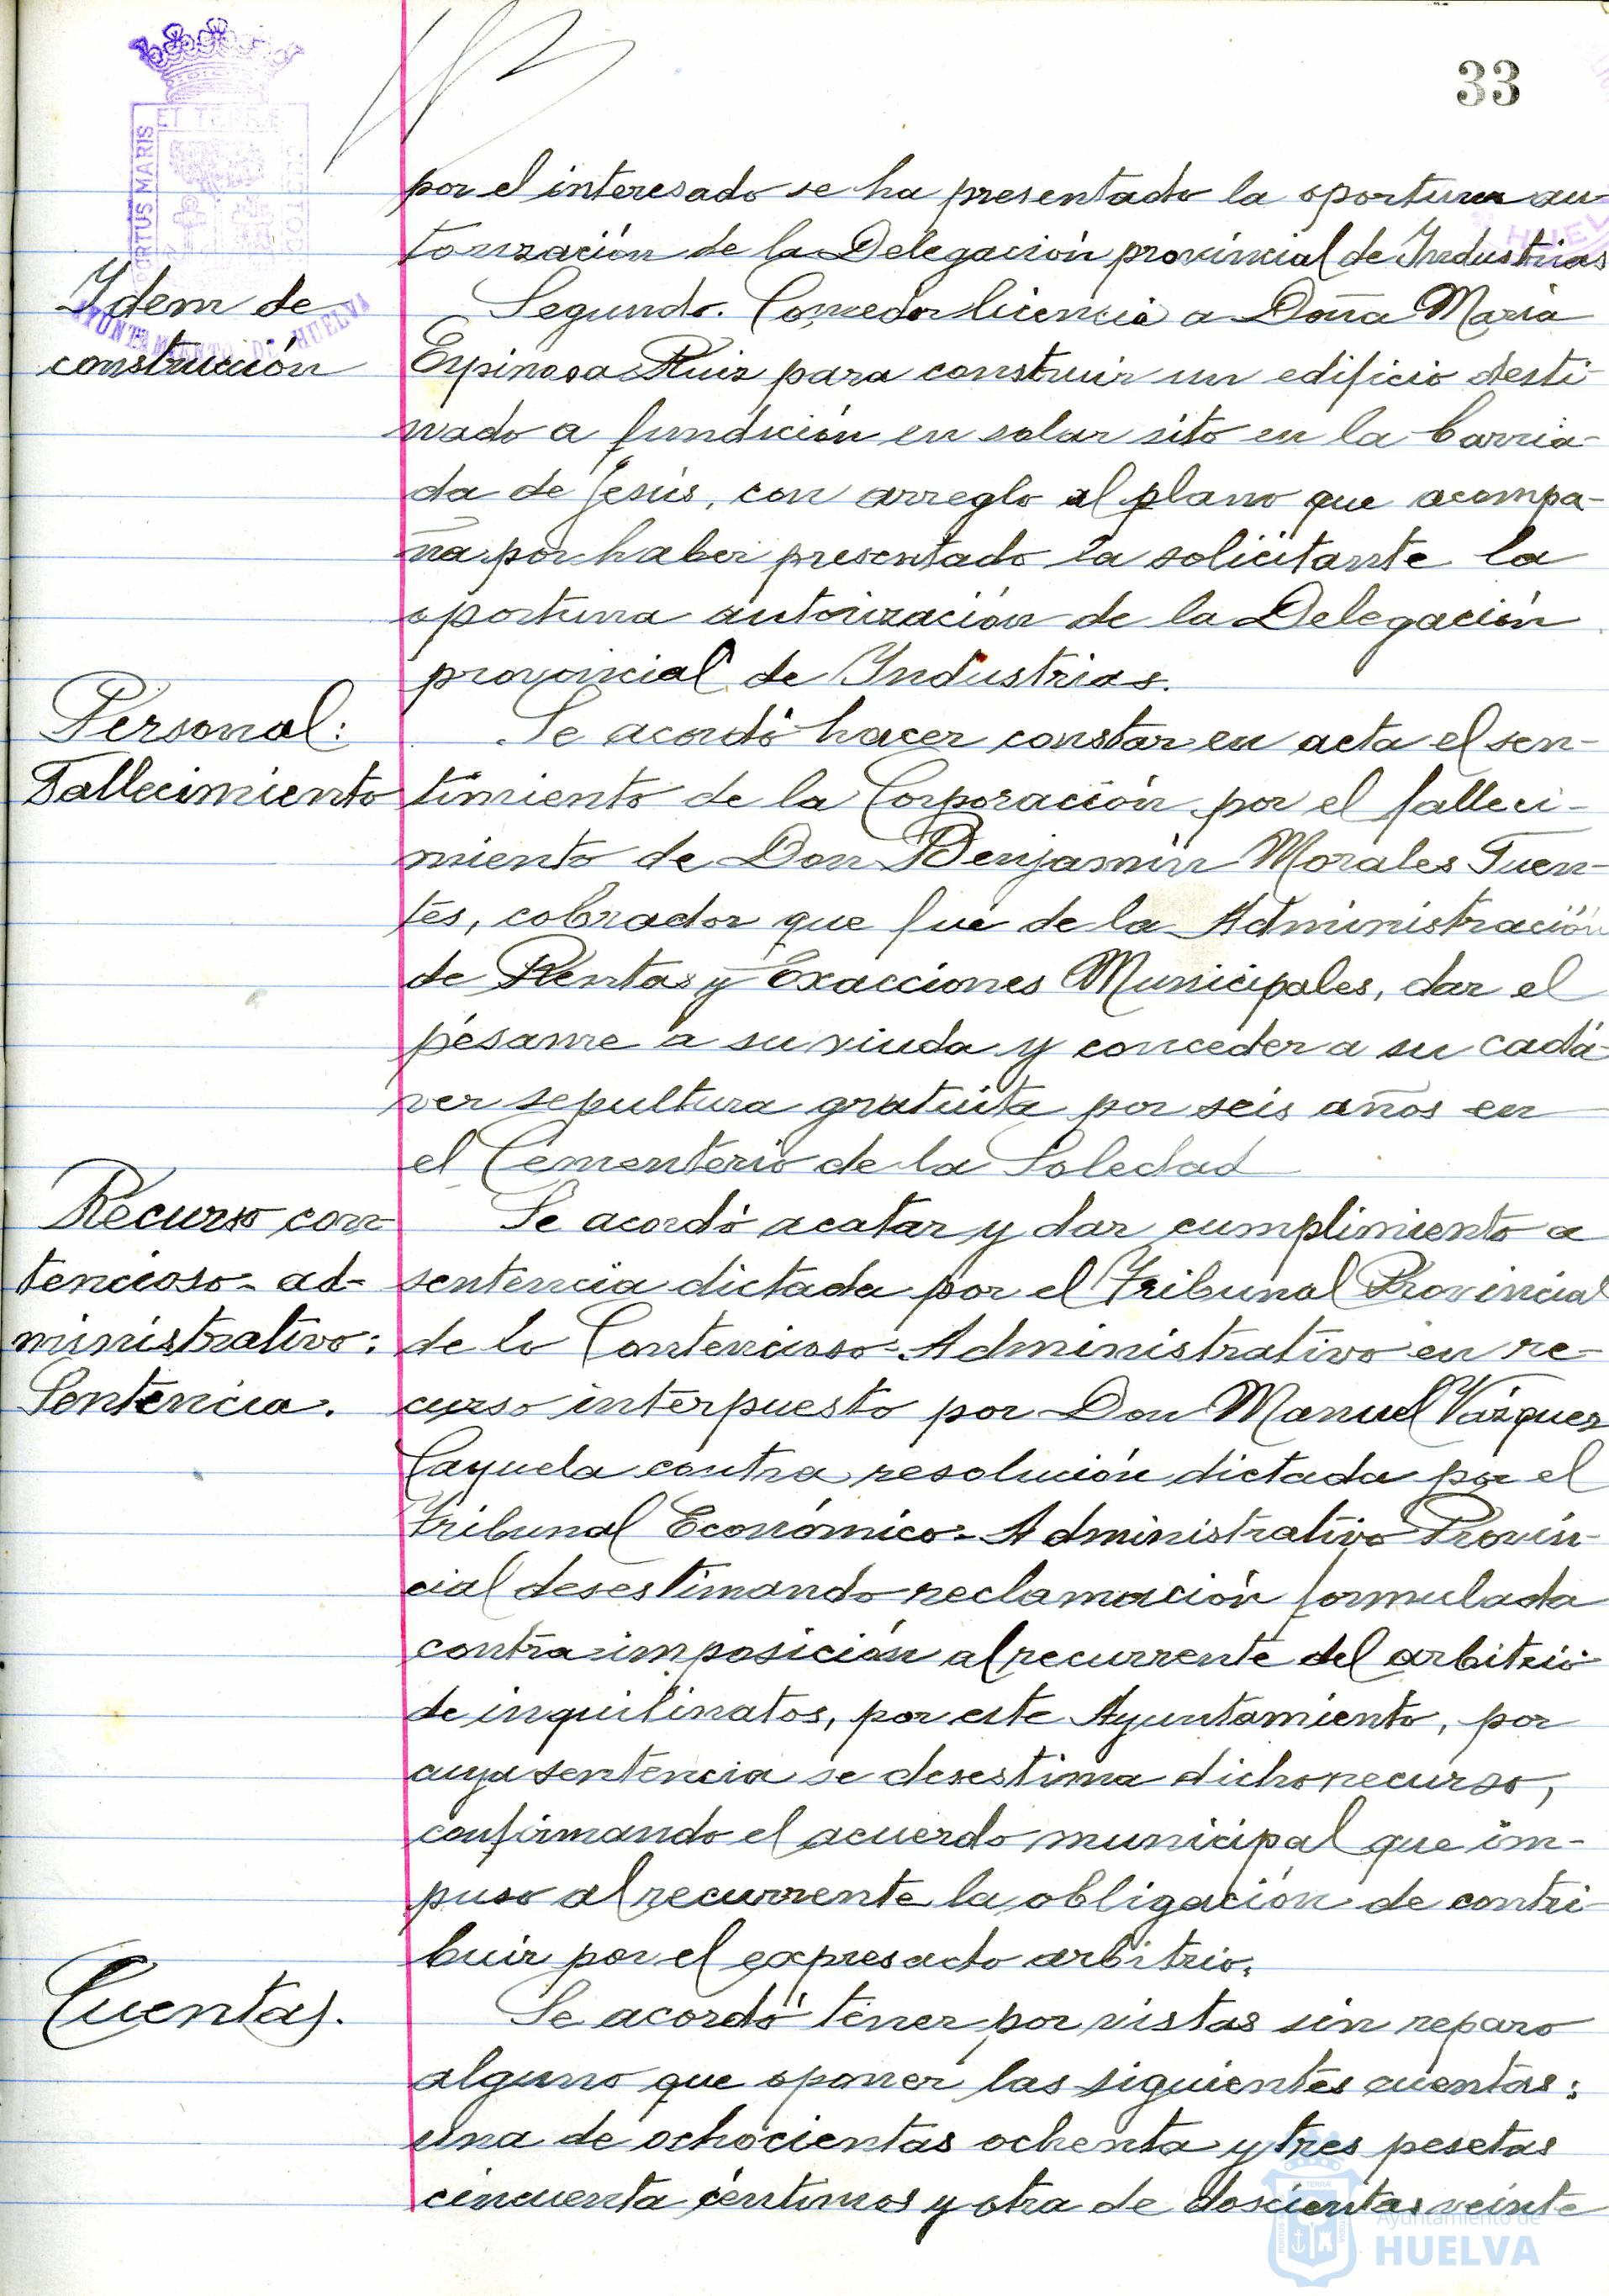 33
ET TERRÆ
PORTUS MARIS
CUSTOD
AYUNTAMIENTO DE HUELVA
HUEL
por el interesado se ha presentado la oportuna au-
torización de la Delegación provincial de Industrias
Idem de
construcción
Segundo. Conceder licencia a Doña María
Espinosa Ruiz para construir un edificio desti-
nado a fundición en solar sito en la barria-
da de Jesús, con arreglo al plano que acompa-
ña por haber presentado la solicitante la
oportuna autorización de la Delegación
provincial de Industrias.
Personal:
Fallecimiento
Se acordó hacer constar en acta el sen-
timiento de la Corporación por el falleci-
miento de Don Benjamín Morales Fuen-
tes, cobrador que fué de la Administración
de Rentas y Exacciones Municipales, dar el
pésame a su viuda y conceder a su cadá-
ver sepultura gratuita por seis años en
el Cementerio de la Soledad
Recurso con-
tencioso-ad-
ministrativo:
Sentencia.
Se acordó acatar y dar cumplimiento a
sentencia dictada por el Tribunal Provincial
de lo Contencioso-Administrativo en re-
curso interpuesto por Don Manuel Vázquez
Cayuela contra resolución dictada por el
Tribunal Económico-Administrativo Provin-
cial desestimando reclamación formulada
contra imposición al recurrente del arbitrio
de inquilinatos, por este Ayuntamiento, por
cuya sentencia se desestima dicho recurso,
confirmando el acuerdo municipal que im-
puso al recurrente la obligación de contri-
buir por el expresado arbitrio.
Cuentas.
Se acordó tener por vistas sin reparo
alguno que oponer las siguientes cuentas:
una de ochocientas ochenta y tres pesetas
cincuenta céntimos y otra de doscientas veinte
Ayuntamiento de
HUELVA